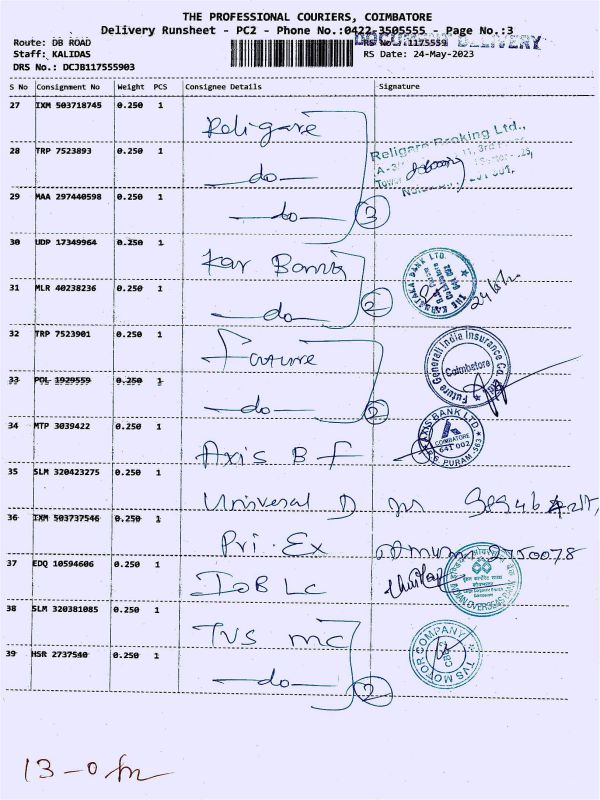 THE PROFESSIONAL COURIERS, COIMBATORE
Delivery Runsheet - PC2 - Phone No.:0422-3505555 Page No.:3
Route: DB ROAD RS No.:1175559
DOCUMENT DELIVERY
Staff: KALIDAS RS Date: 24-May-2023
DRS No.: DCJB117555903
S No Consignment No Weight PCS Consignee Details Signature
27 IXM 503718745 0.250 1 Religare
Religare Broking Ltd.,
28 TRP 7523893 0.250 1 do
29 MAA 297440598 0.250 1 do 3
30 UDP 17349964 0.250 1 Kar Bank
THE KARNATAKA BANK LTD.
31 MLR 40238236 0.250 1 do 2
32 TRP 7523901 0.250 1 Future
Future Generali India Insurance Co. Ltd.
Coimbatore
33 POL 1929559 0.250 1 do 2
34 MTP 3039422 0.250 1 Axis B F
AXIS BANK LTD
COIMBATORE
641 002
R.S. PURAM-563
35 SLM 320423275 0.250 1 Universal D
36 IXM 503737546 0.250 1 Pri. Ex
37 EDQ 10594606 0.250 1 IOB LC
INDIAN OVERSEAS BANK
38 SLM 320381085 0.250 1 TVS MC
TVS MOTOR COMPANY
CBE
39 HSR 2737540 0.250 1 do 2